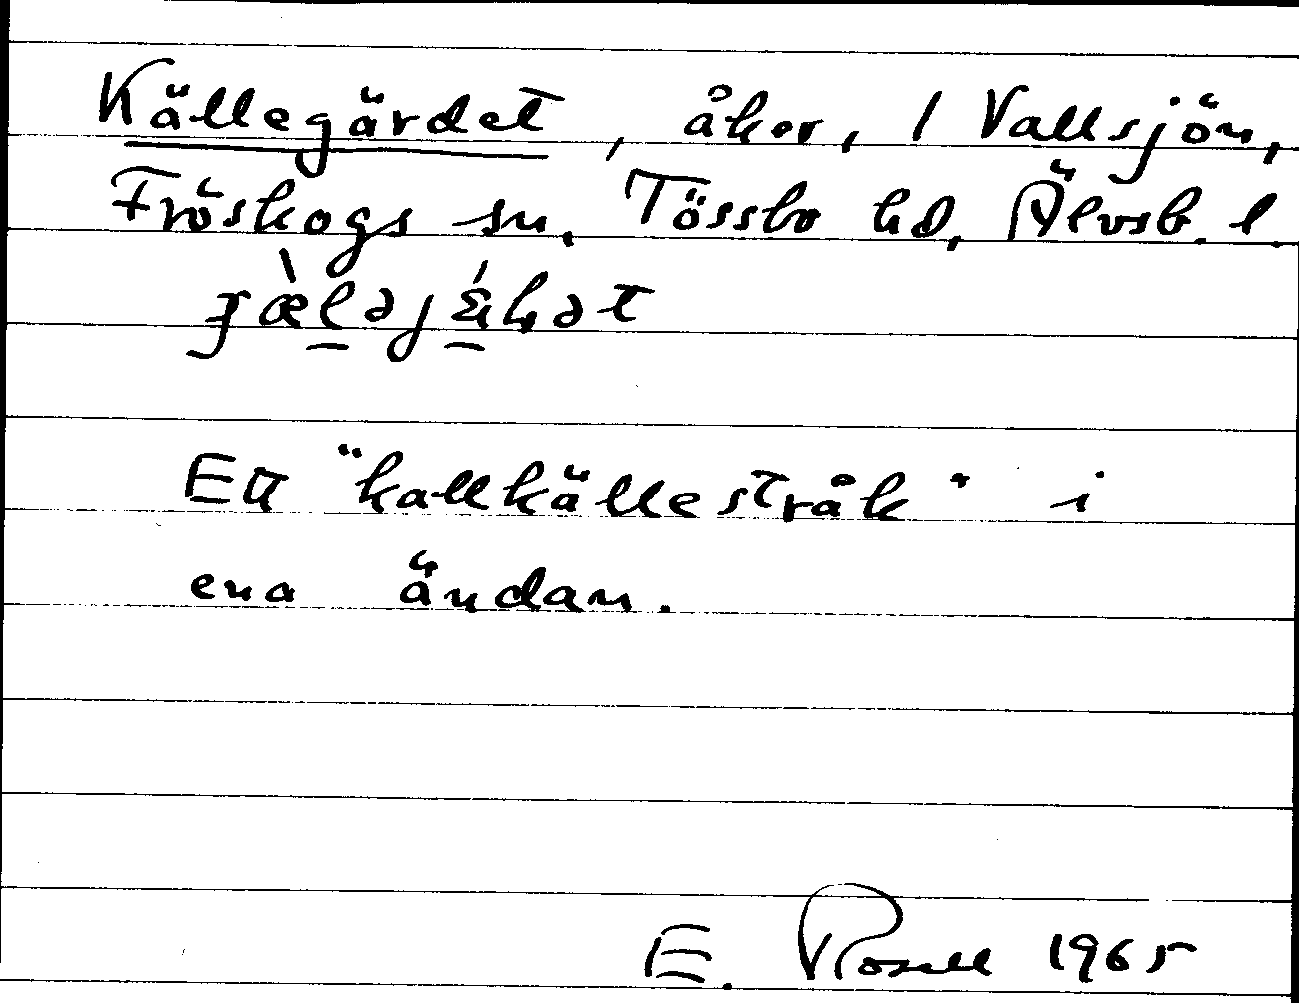 Källegärdet, åker, 1 Vallsjön,
Fröskogs sn. Tössbo hd, Älvsb. l.
Ett "kallkällestråk" i
ena ändan.
E. Rosell 1965